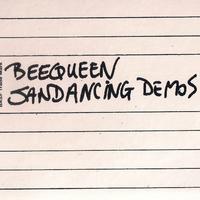 BEEQUEEN
SANDANCING DEMOS